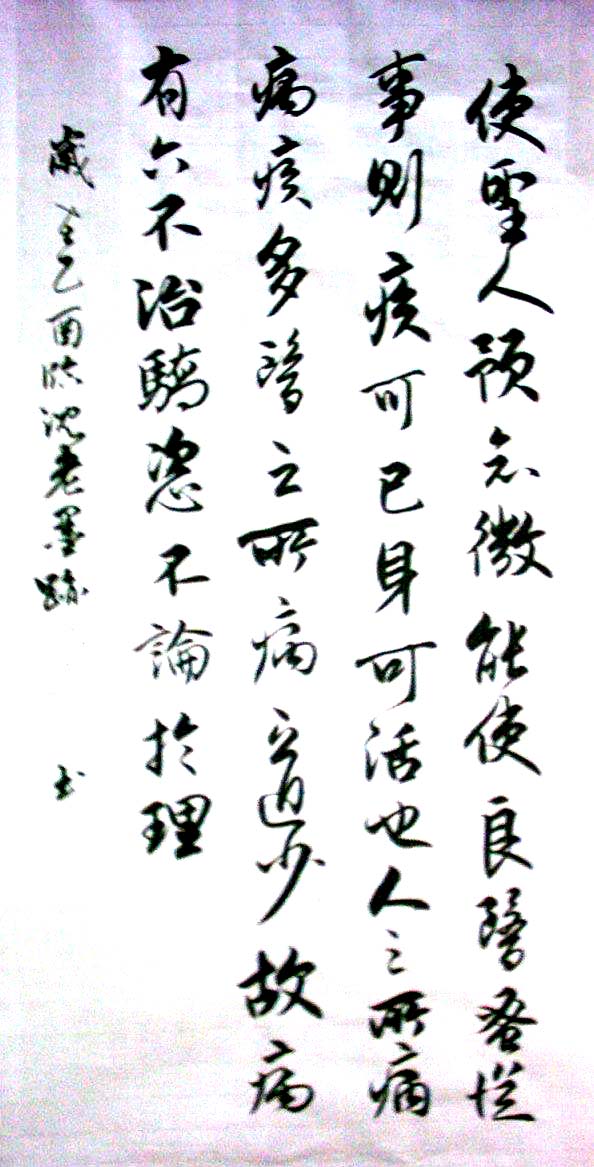 使聖人预知微能使良醫蚤從
事則疾可已身可活也人之所病
病疾多醫之所病道少故病
有六不治驕恣不論於理
歲在乙酉临沈老墨跡 书